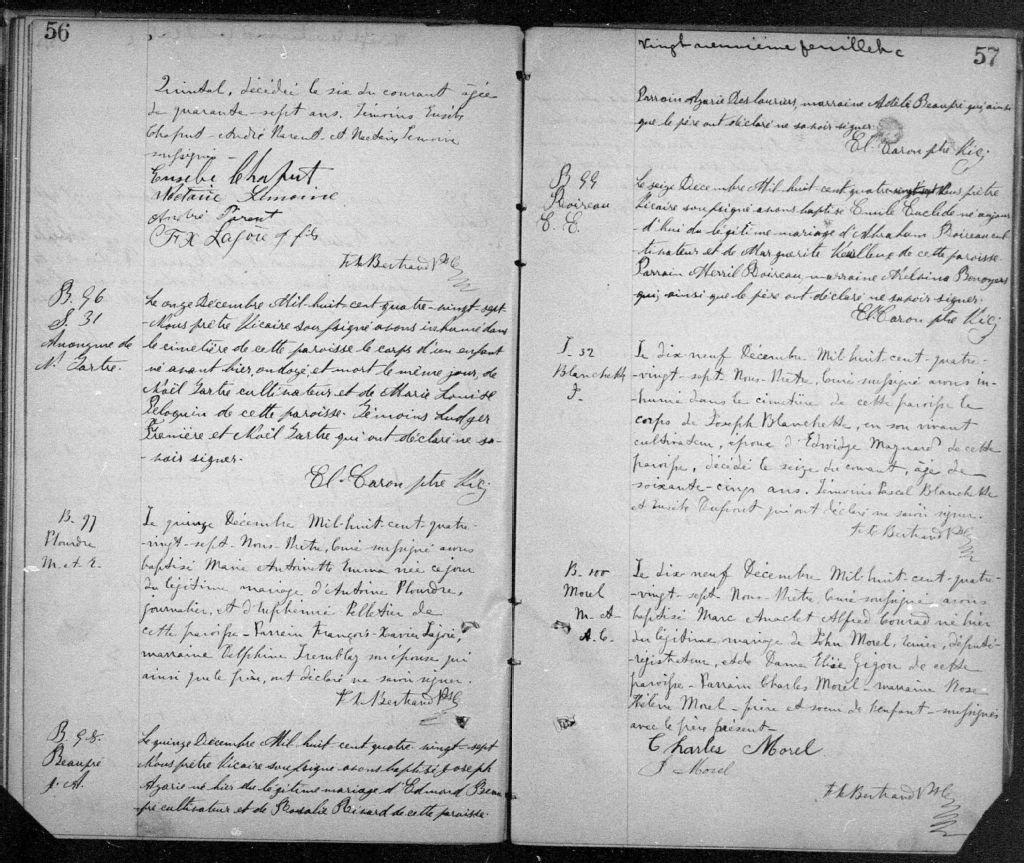 56
Quintal, décédée le six du courant âgée
de quarante-sept ans. Témoins Eusèbe
Chaput - André Parent, et Nectaire Lemoine
soussignés -
Eusebe Chaput
Nectaire Lemoine
André Parent
F X Lajoie fils
Bertrand Ptre
B. 96
S. 31
Anonyme de
N. Gastre.
Le onze Décembre Mil-huit cent quatre-vingt-sept
Nous prêtre Vicaire soussigné avons inhumé dans
le cimetière de cette paroisse le corps d'un enfant
né avant hier, ondoyé et mort le même jour, de
Noël Gastre cultivateur et de Marie Louise
Peloquin de cette paroisse. Témoins Ludger
et Noël Gastre qui ont déclaré ne sa-
-voir signer.
El. Caron ptre Vic
B. 97
Plourdre
M. A. E.
Le quinze Décembre Mil-huit-cent-quatre-
-vingt-sept-Nous-Prêtre, Curé soussigné avons
baptisé Marie Antoinette Emma née ce jour
du légitime mariage d'Antoine Plourdre,
journalier, et d'Euphémie Pelletier de
cette paroisse - Parrain François-Xavier Lajoie,
marraine Delphine Tremblay son épouse qui
ainsi que le père, ont déclaré ne savoir signer.
Bertrand Ptre
B. 98.
Beaupré
J. A.
Le quinze Décembre Mil-huit cent-quatre-vingt-sept
Nous prêtre Vicaire soussigné avons baptisé Joseph
Azarie né hier du légitime mariage d'Edmond Beau-
pré cultivateur et de Rosalie Rivard de cette paroisse.
Vingt neuvième feuillet
57
Parrain Azarie Deslauriers, marraine Adèle Beaupré qui ainsi
que le père ont déclaré ne savoir signer.
El. Caron ptre Vic
B 99
Boireau
E. E.
Le seize Décembre Mil-huit-cent quatre Nous prêtre
Vicaire soussigné avons baptisé Emile Euclide né aujour-
d'hui du légitime mariage d'Abraham Boireau cul-
tivateur et de Marguerite de cette paroisse
Parrain Merril Boireau, marraine Melvina
qui, ainsi que le père ont déclaré ne savoir signer.
El. Caron ptre Vic
S. 32
Blanchette
J.
Le dix neuf Décembre Mil huit cent-quatre-
-vingt-sept Nous-Prêtre, Curé soussigné avons in-
-humé dans le cimetière de cette paroisse le
corps de Joseph Blanchette, en son vivant
cultivateur, époux d'Edwidge Magnard de cette
paroisse, décédé le seize du courant, âgé de
soixante-cinq ans. Témoins Pascal Blanchette
et Eusèbe Dupont qui ont déclaré ne savoir signer.
Bertrand Ptre
B. 100
Morel
M. A.
A. C.
Le dix neuf Décembre Mil-huit-cent-quatre-
-vingt-sept Nous-Prêtre, Curé soussigné avons
baptisé Marc Anaclet Alfred Conrad né hier
du légitime mariage de John Morel, député-
-régistrateur, et de Dame Elise Gigon de cette
paroisse - Parrain Charles Morel - marraine Rose
Hélène Morel - frère et soeur de l'enfant - soussignés
avec le père présent -
Charles Morel
J Morel
Bertrand Ptre